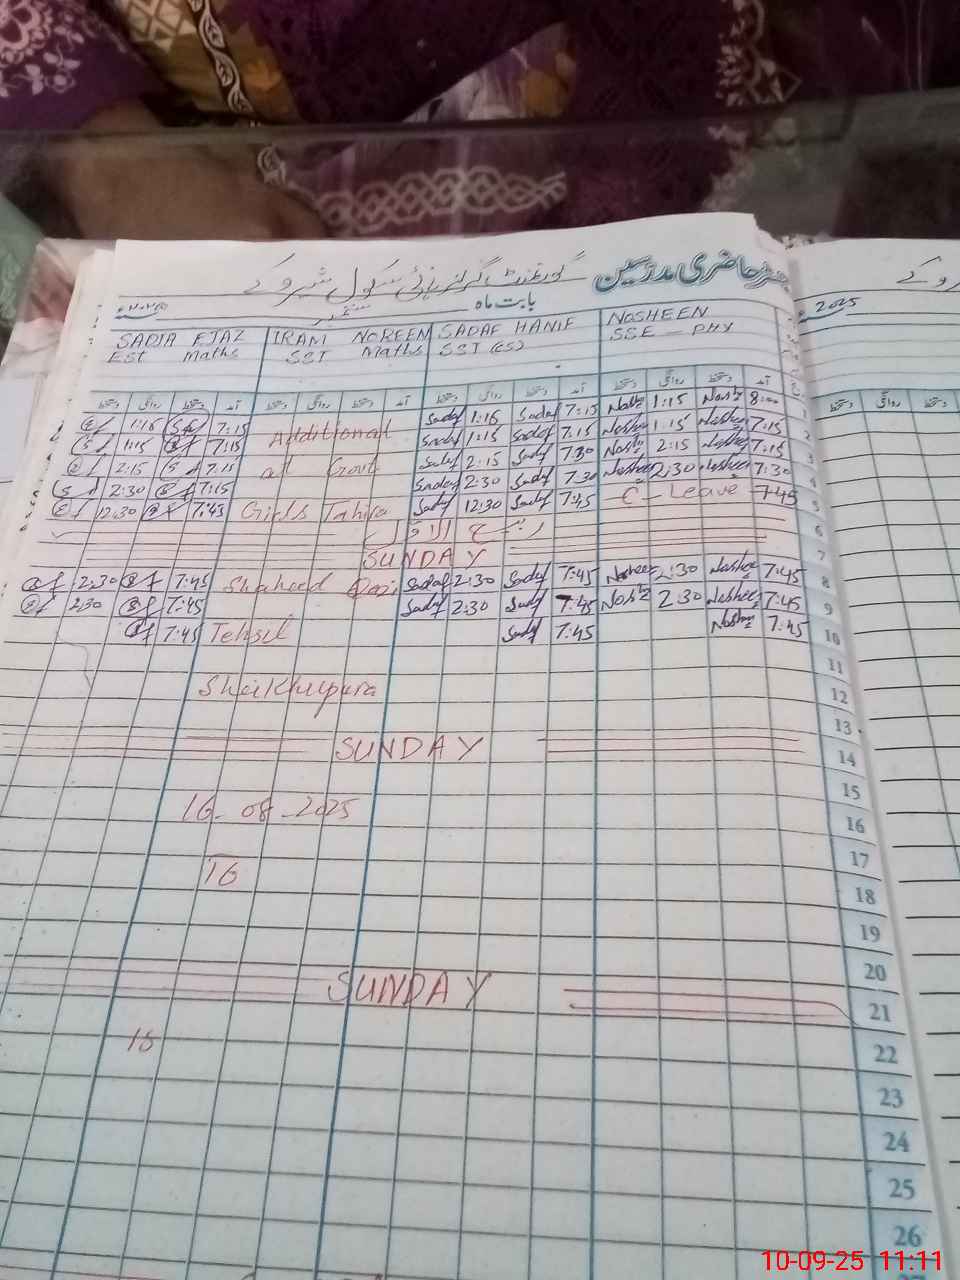 رجسٹر حاضری مدرسین گورنمنٹ گرلز ہائی سکول شیرو کے
بابت ماہ ستمبر
2025
SADIA EJAZ IRAM NOREEN SADAF HANIF NOSHEEN
EST Maths SST Maths SST (CS) SSE - PHY
دستخط روانگی دستخط آمد دستخط روانگی دستخط آمد دستخط روانگی دستخط آمد دستخط روانگی دستخط آمد
1:15 7:15 Sadaf 1:15 Sadaf 7:15 1:15 8:00 1
1:15 7:15 Additional Sadaf 1:15 Sadaf 7:15 1:15 7:15 2
2:15 7:15 at Govt Sadaf 2:15 Sadaf 7:30 2:15 7:15 3
2:30 7:15 Sadaf 2:30 Sadaf 7:30 Nosheen 2:30 Nosheen 7:30 4
12:30 7:45 Girls Tahira Sadaf 12:30 Sadaf 7:45 C - Leave 7:45 5
ربیع الاول 6
SUNDAY 7
2:30 7:45 Shaheed Qazi Sadaf 2:30 Sadaf 7:45 Nosheen 2:30 Nosheen 7:45 8
2:30 7:45 Sadaf 2:30 Sadaf 7:45 2:30 Nosheen 7:45 9
7:45 Tehsil Sadaf 7:45 7:45 10
11
Sheikhupura 12
13
SUNDAY 14
15
16-08-2025 16
17
16 18
19
20
SUNDAY 21
22
23
24
25
26
10-09-25 11:11